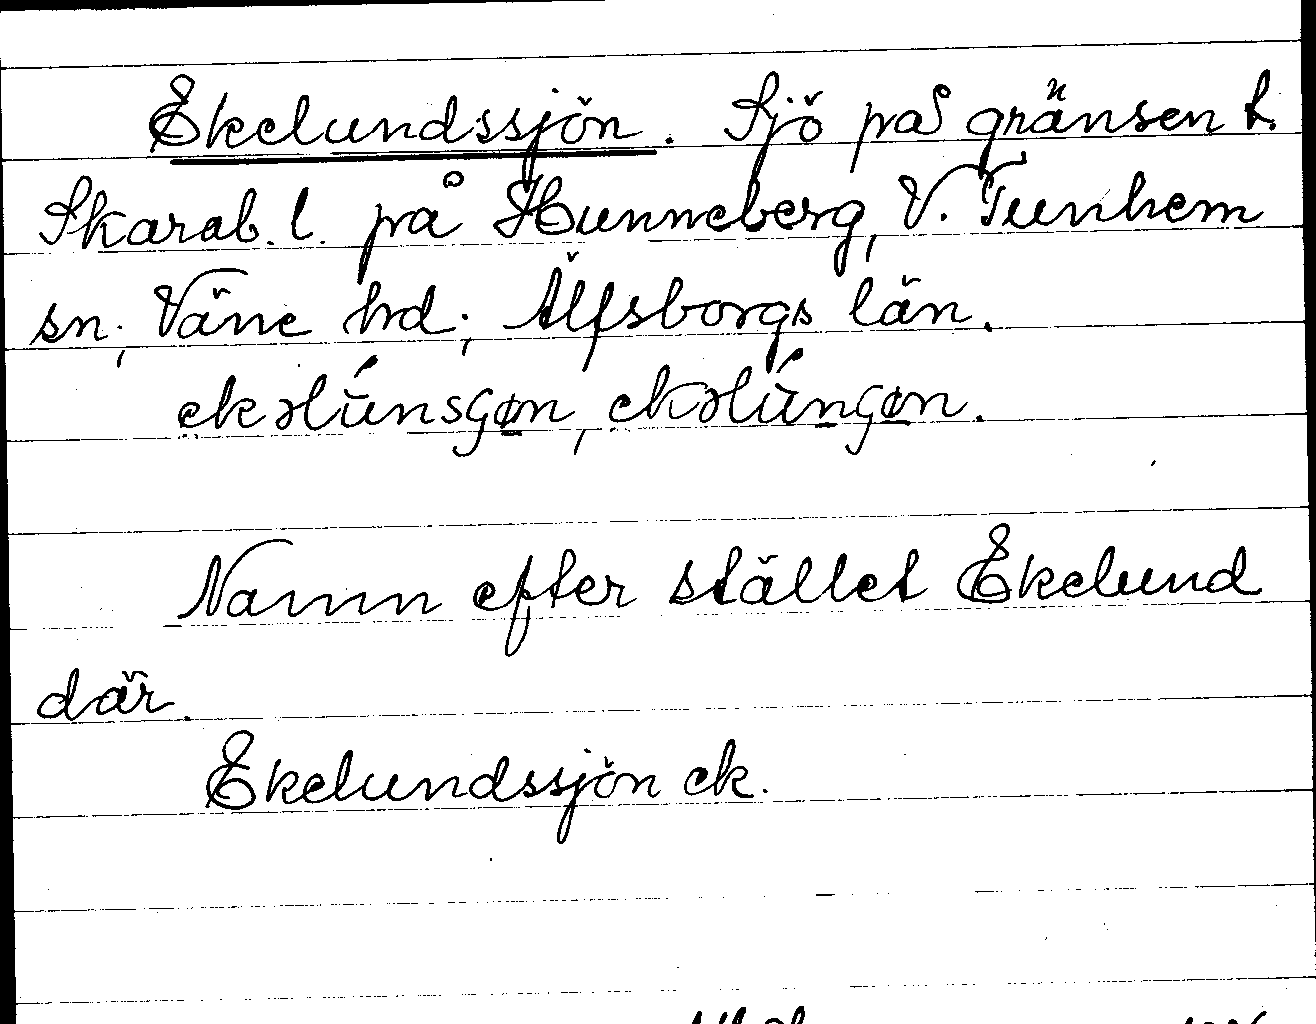 Ekelundssjön. Sjö på gränsen t.
Skarab. l. på Hunneberg, V. Tunhem
sn, Väne hd, Älfsborgs län.
Namn efter stället Ekelund
där.
Ekelundssjön ek.